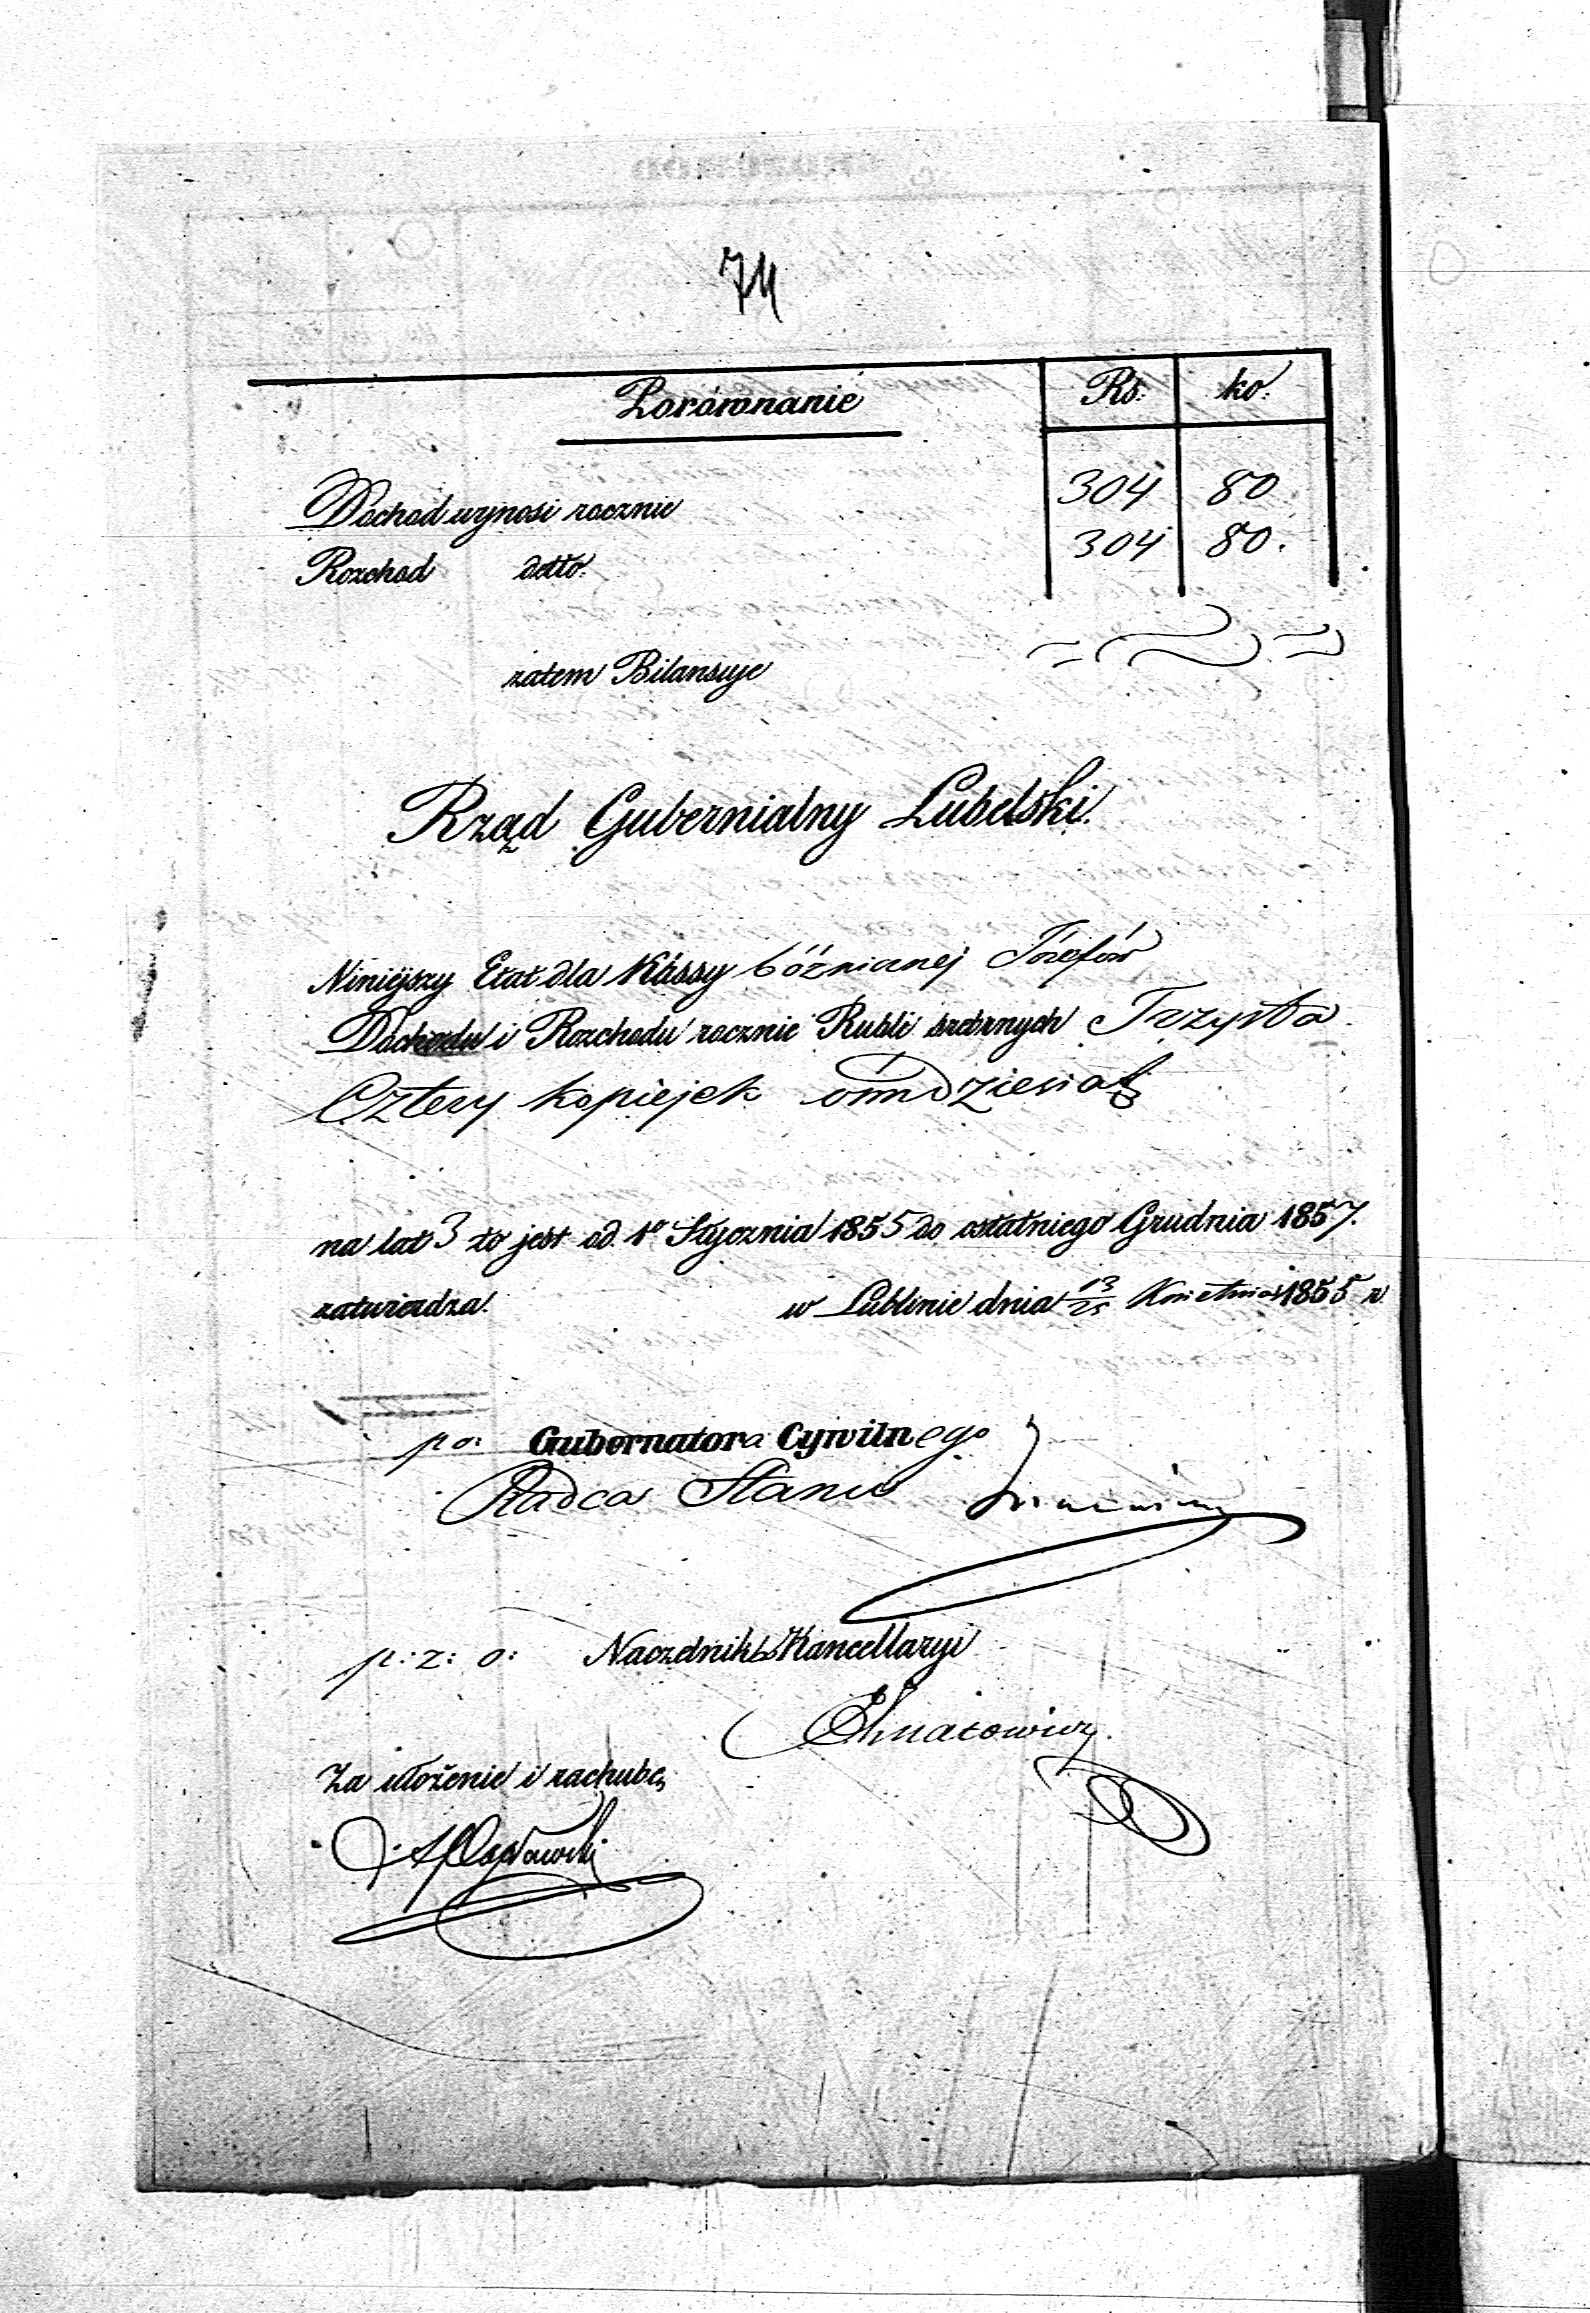 74
Porównanie Rs: ko:
Dochod wynosi rocznie 304 80
Rozchod detto: 304 80.
zatem Bilansuje
Rząd Gubernialny Lubelski.
Niniejszy Etat dla Kassy bóźnicznej Józefów
Dochodu i Rozchodu rocznie Rubli srebrnych Trzysta
Cztery kopiejek ośmdziesiąt
na lat 3 to jest od 1o Stycznia 1855 do ostatniego Grudnia 1857.
zatwierdza. w Lublinie dnia 13/25 Kwietnia 1855 r.
p o: Gubernatora Cywilnego
Radca Stanu
p: z: o: Naczelnika Kancellaryi
Za ułożenie i rachubę